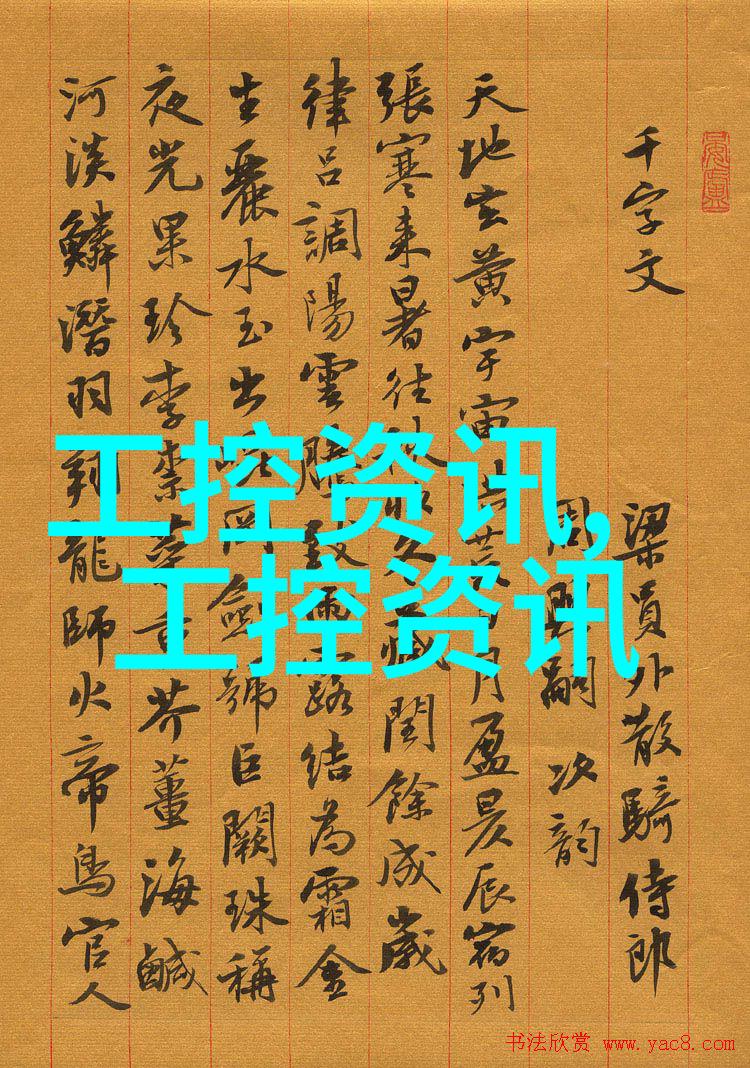 千字文
梁員外散騎侍郎
周興嗣 次韵
天地玄黃宇宙洪荒日月盈昃辰宿列
張寒來暑往秋收冬藏閏餘成歲
律呂調陽雲騰致雨露結為霜金
生麗水玉出崐岡劍號巨闕珠稱
夜光果珍李柰菜重芥薑海鹹
河淡鱗潛羽翔龍師火帝鳥官人
工控资讯,
工控资讯
书法欣赏 www.yac8.com